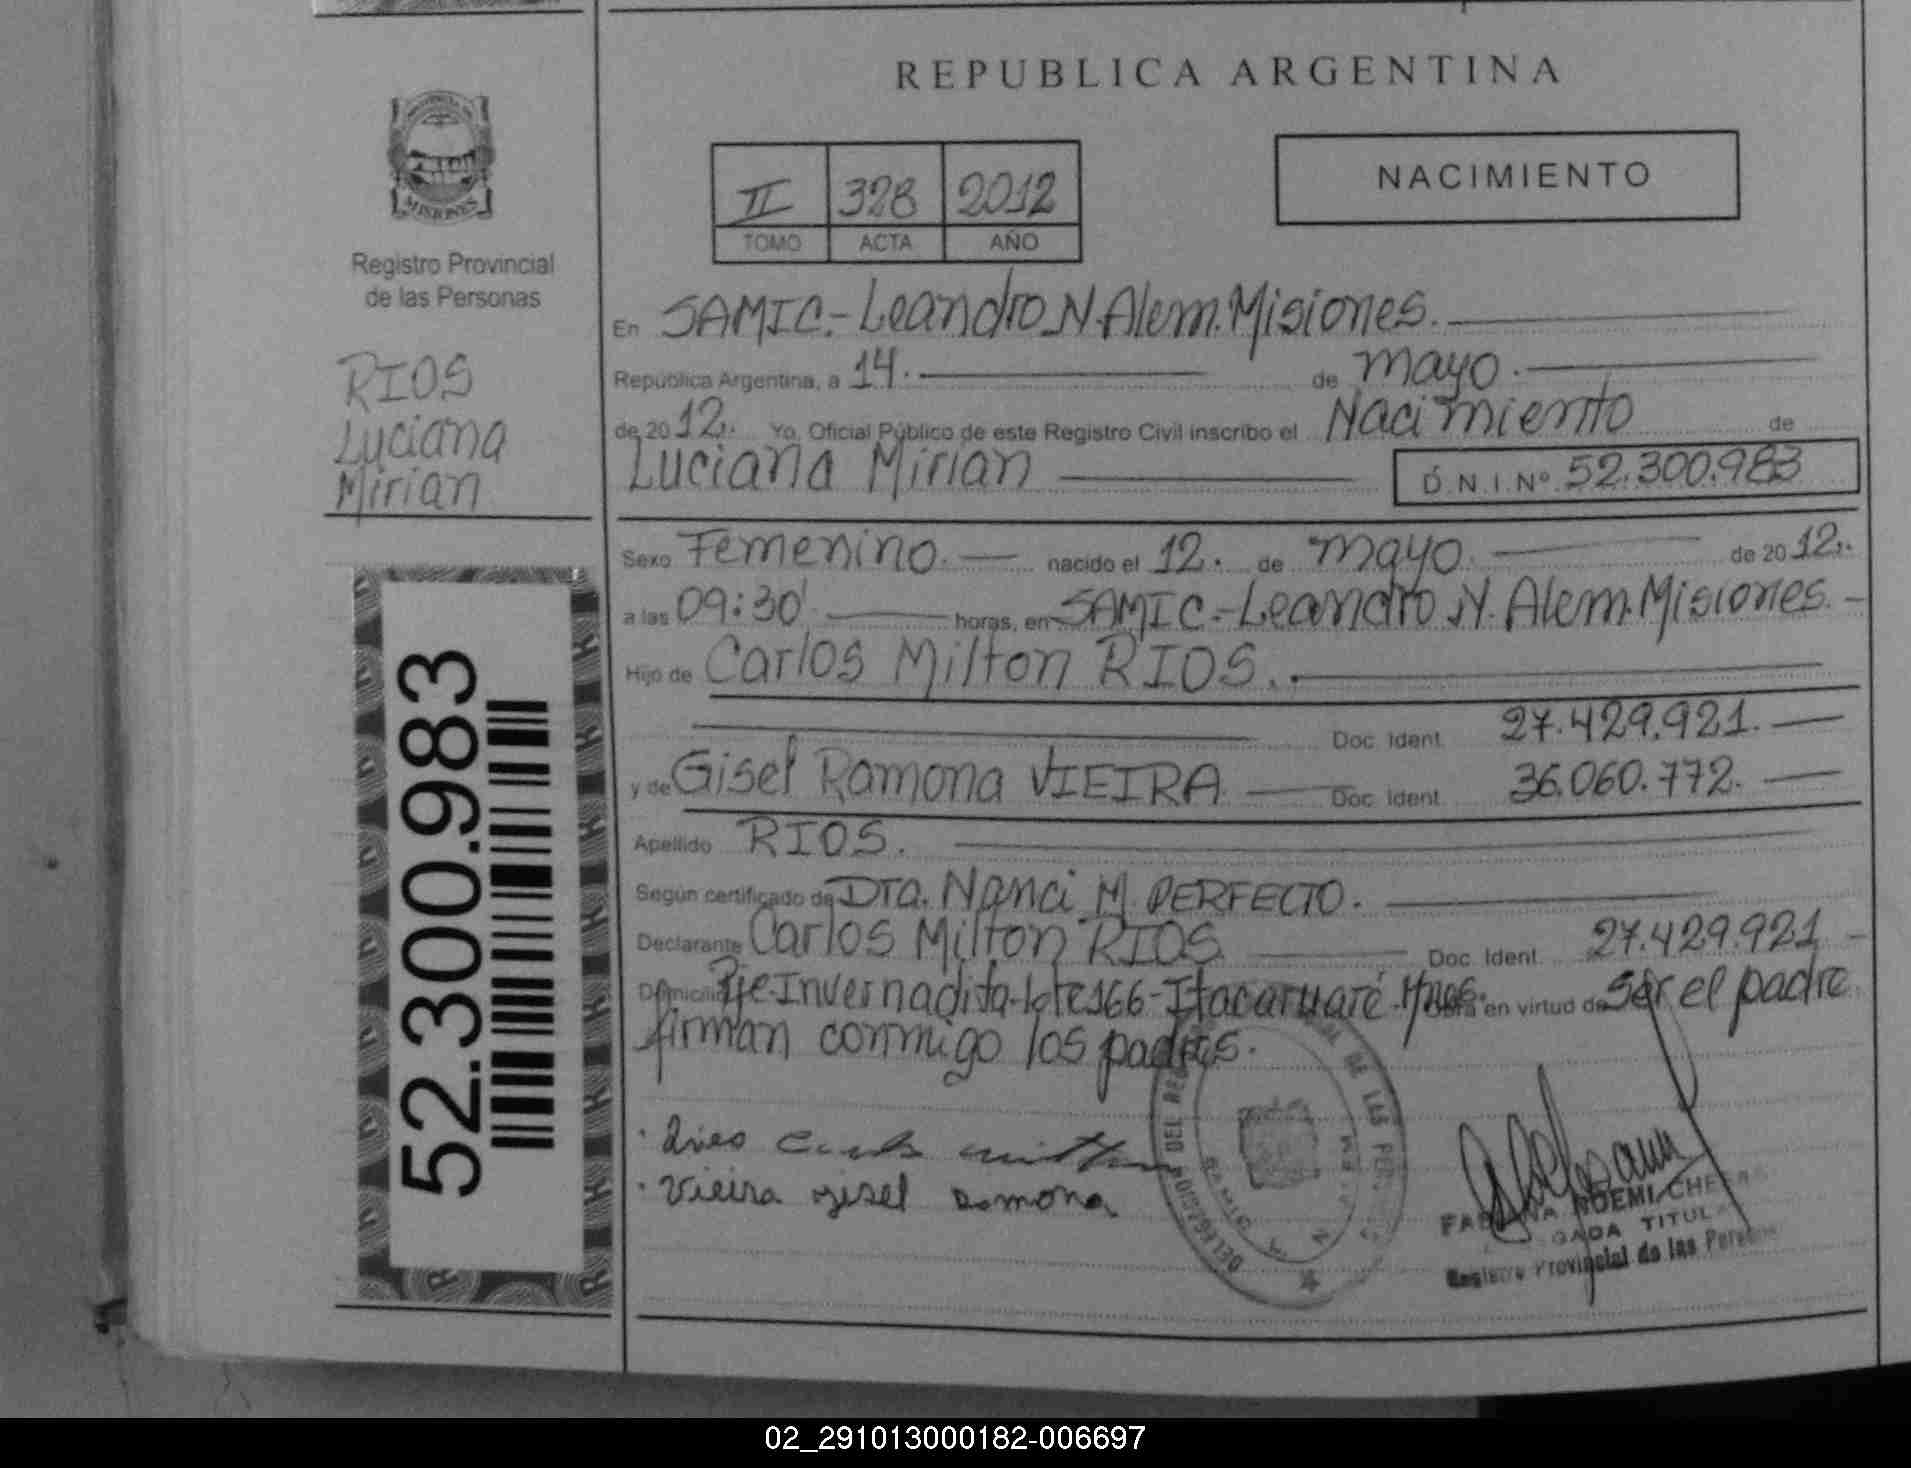 REPUBLICA ARGENTINA
NACIMIENTO
II 328 2012
TOMO ACTA AÑO
MISIONES
Registro Provincial
de las Personas
RIOS
Luciana
Mirian
52.300.983
En SAMIC.-Leandro N. Alem. Misiones.
República Argentina, a 14. de mayo.
de 2012. Yo, Oficial Público de este Registro Civil inscribo el Nacimiento de
Luciana Mirian D.N.I. Nº 52.300.983
Sexo Femenino. nacido el 12. de mayo. de 2012.
a las 09:30' horas, en SAMIC.-Leandro N. Alem. Misiones.
Hijo de Carlos Milton RIOS.
Doc. Ident. 27.429.921.
y de Gisel Ramona VIEIRA Doc. Ident. 36.060.772.
Apellido RIOS.
Según certificado de Dra. Nanci M. PERFECTO.
Declarante Carlos Milton RIOS Doc. Ident. 27.429.921
Domicilio Pje-Invernadita-lote 166-Itacaruaré-Mnes. Obra en virtud de Ser el padre
firman conmigo los padres.
Rios Carlos Milton
Vieira gisel Ramona
DELEGACION DEL DE LAS
NOEMI
TITUL
Registro Provincial de las
02_291013000182-006697